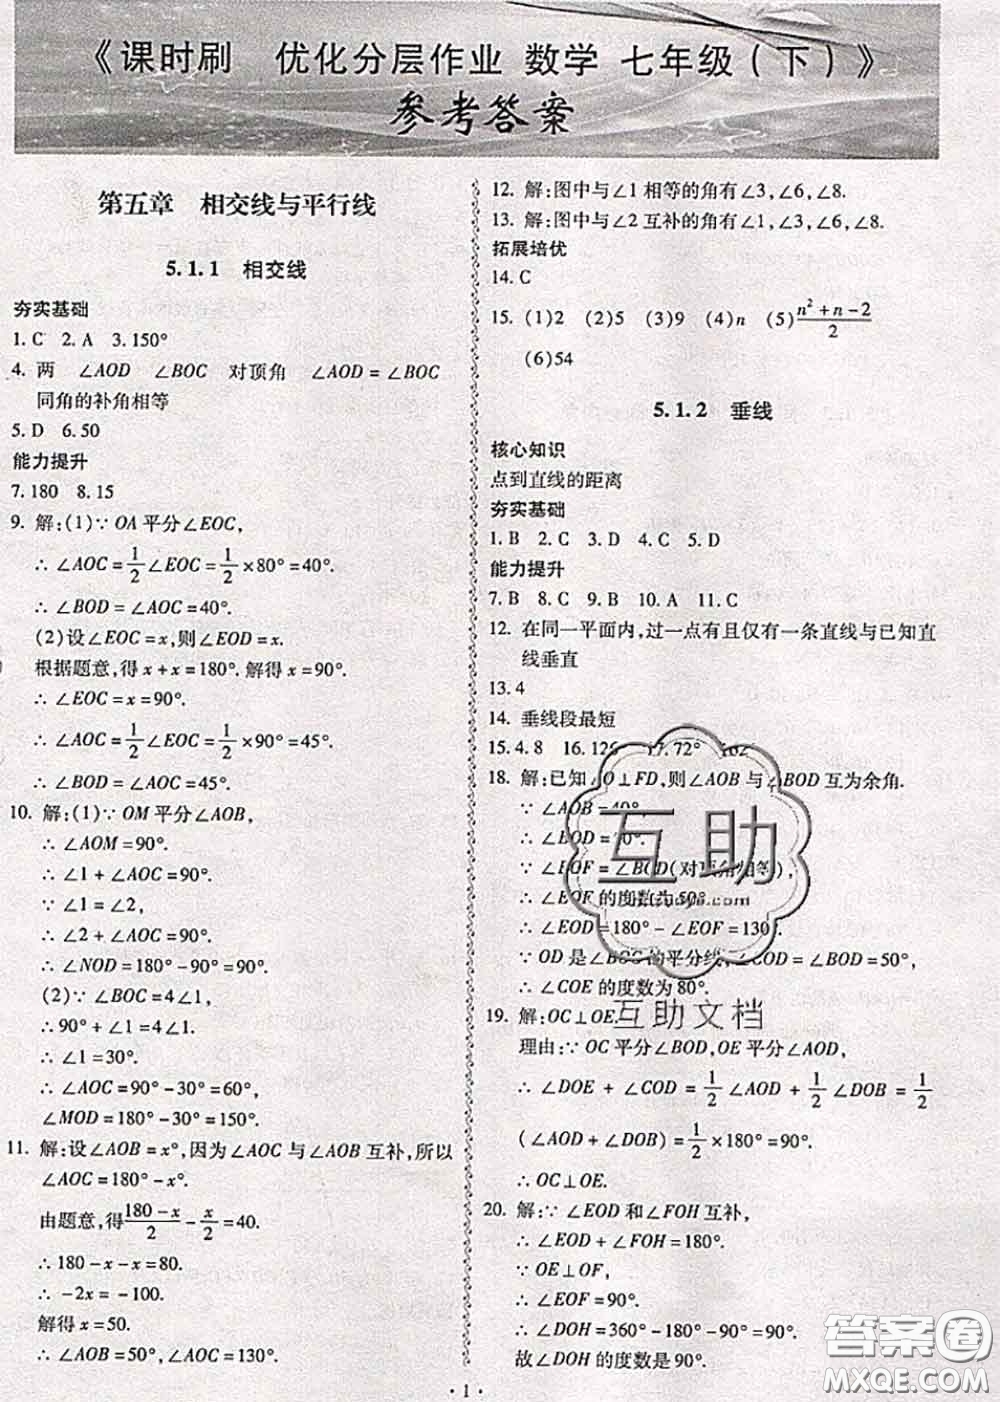 《课时刷 优化分层作业 数学 七年级(下)》
参考答案
第五章 相交线与平行线
5.1.1 相交线
夯实基础
1.C 2.A 3.150°
4. 两 ∠AOD ∠BOC 对顶角 ∠AOD=∠BOC
同角的补角相等
5.D 6.50
能力提升
7.180 8.15
9. 解:(1)∵OA平分∠EOC,
∴∠AOC=1/2∠EOC=1/2×80°=40°.
∴∠BOD=∠AOC=40°.
(2)设∠EOC=x,则∠EOD=x.
根据题意,得x+x=180°.解得x=90°.
∴∠EOC=x=90°.
∴∠AOC=1/2∠EOC=1/2×90°=45°.
∴∠BOD=∠AOC=45°.
10. 解:(1)∵OM平分∠AOB,
∴∠AOM=90°.
∴∠1+∠AOC=90°.
∵∠1=∠2,
∴∠2+∠AOC=90°.
∴∠NOD=180°-90°=90°.
(2)∵∠BOC=4∠1,
∴90°+∠1=4∠1.
∴∠1=30°.
∴∠AOC=90°-30°=60°,
∠MOD=180°-30°=150°.
11. 解:设∠AOB=x°,因为∠AOC与∠AOB互补,所以
∠AOC=180°-x°.
由题意,得(180-x)/2-x/2=40.
∴180-x-x=80.
∴-2x=-100.
解得x=50.
∴∠AOB=50°,∠AOC=130°.
12. 解:图中与∠1相等的角有∠3,∠6,∠8.
13. 解:图中与∠2互补的角有∠1,∠3,∠6,∠8.
拓展培优
14.C
15. (1)2 (2)5 (3)9 (4)n (5)(n²+n-2)/2
(6)54
5.1.2 垂线
核心知识
点到直线的距离
夯实基础
1.B 2.C 3.D 4.C 5.D
能力提升
7.B 8.C 9.B 10.A 11.C
12. 在同一平面内,过一点有且仅有一条直线与已知直
线垂直
13.4
14. 垂线段最短
15.4.8 16.126 17.72° 162
18. 解:已知AO⊥FD,则∠AOB与∠BOD互为余角.
∵∠AOB=40°
∴∠BOD=50°.
∵∠EOF=∠BOD(对顶角相等),
∴∠EOF的度数为50°.
∴∠EOD=180°-∠EOF=130°.
∵OD是∠BOC的平分线,∠COD=∠BOD=50°,
∴∠COE的度数为80°.
19. 解:OC⊥OE.
理由:∵OC平分∠BOD,OE平分∠AOD,
∴∠DOE+∠COD=1/2∠AOD+1/2∠DOB=1/2
(∠AOD+∠DOB)=1/2×180°=90°.
∴OC⊥OE.
20. 解:∵∠EOD和∠FOH互补,
∴∠EOD+∠FOH=180°.
∵OE⊥OF,
∴∠EOF=90°.
∴∠DOH=360°-180°-90°=90°.
故∠DOH的度数是90°.
互助
互助文档
答案圈
MXQE.COM
· 1 ·